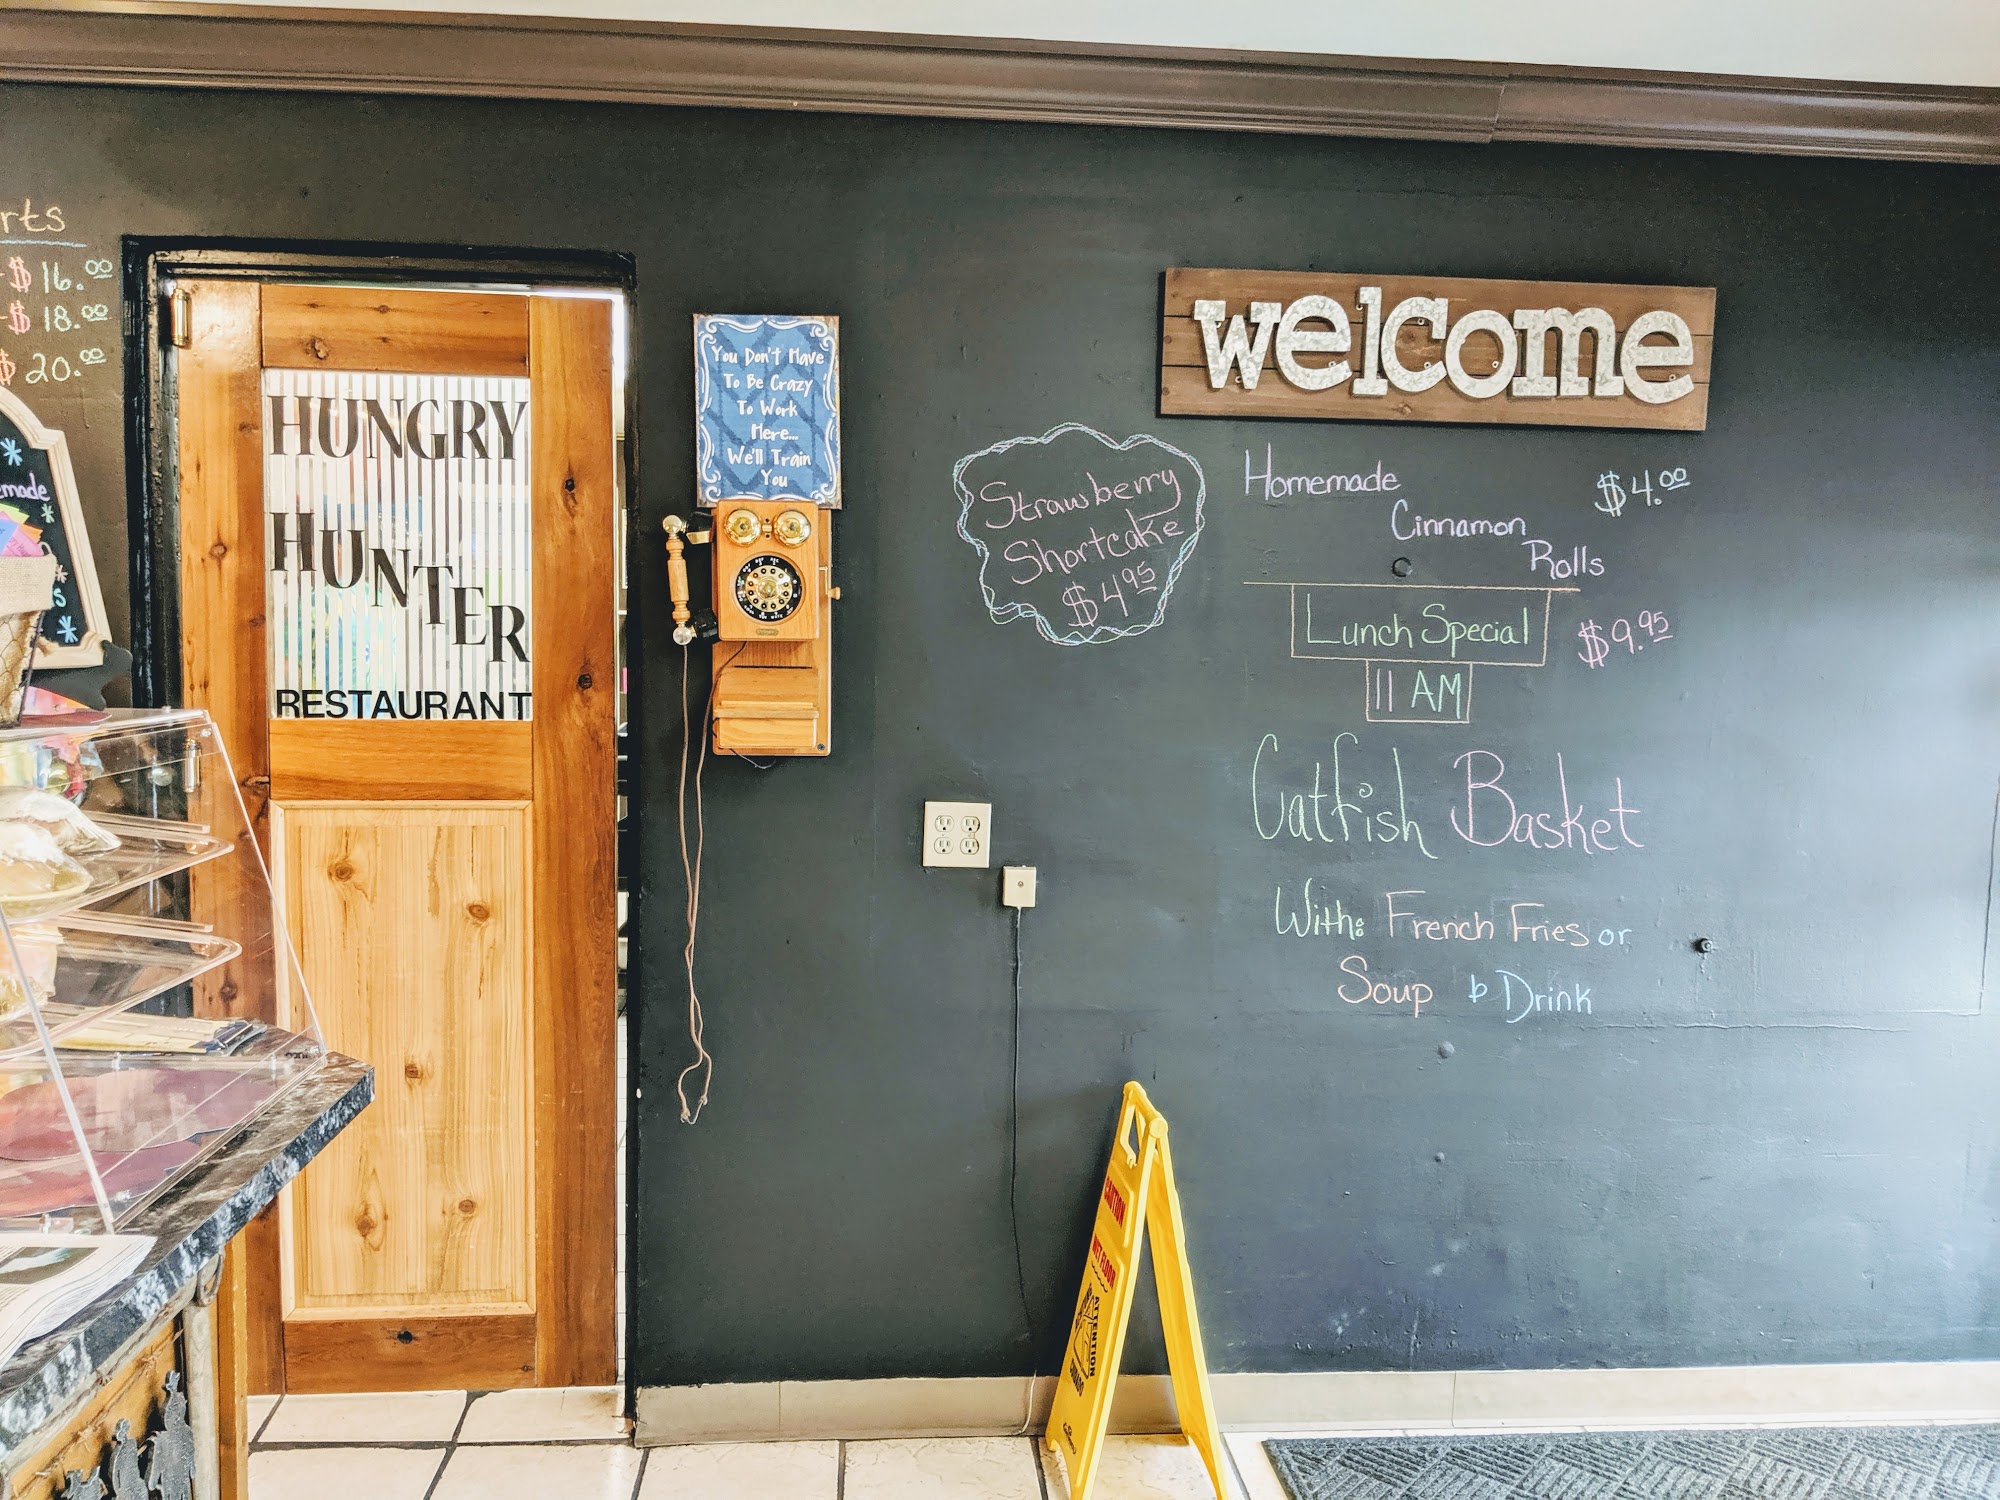 rts
$16.00
$18.00
$20.00
emade
HUNGRY
HUNTER
RESTAURANT
You Don't Have
To Be Crazy
To Work
Here...
We'll Train
You
welcome
Strawberry
Shortcake
$4.95
Homemade $4.00
Cinnamon
Rolls
Lunch Special $9.95
11 AM
Catfish Basket
With: French Fries or
Soup & Drink
CAUTION
WET FLOOR
ATTENTION
CUIDADO